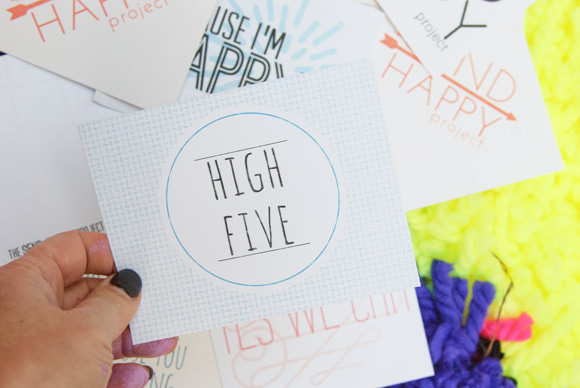 HAPPY
project
USE I'M
HAPPY
project
HAPPY
project
ND
HAPPY
project
HIGH
FIVE
THE SEND
YES WE CAN
YOU